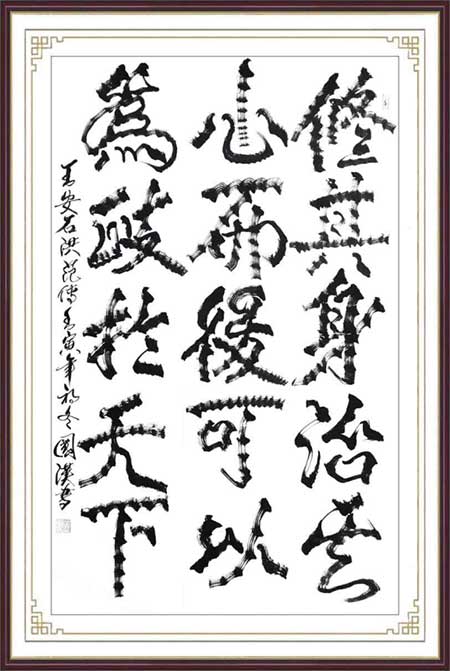 修其身治其
心而後可以
為政於天下
王安石洪范傳壬寅年初冬國漢書